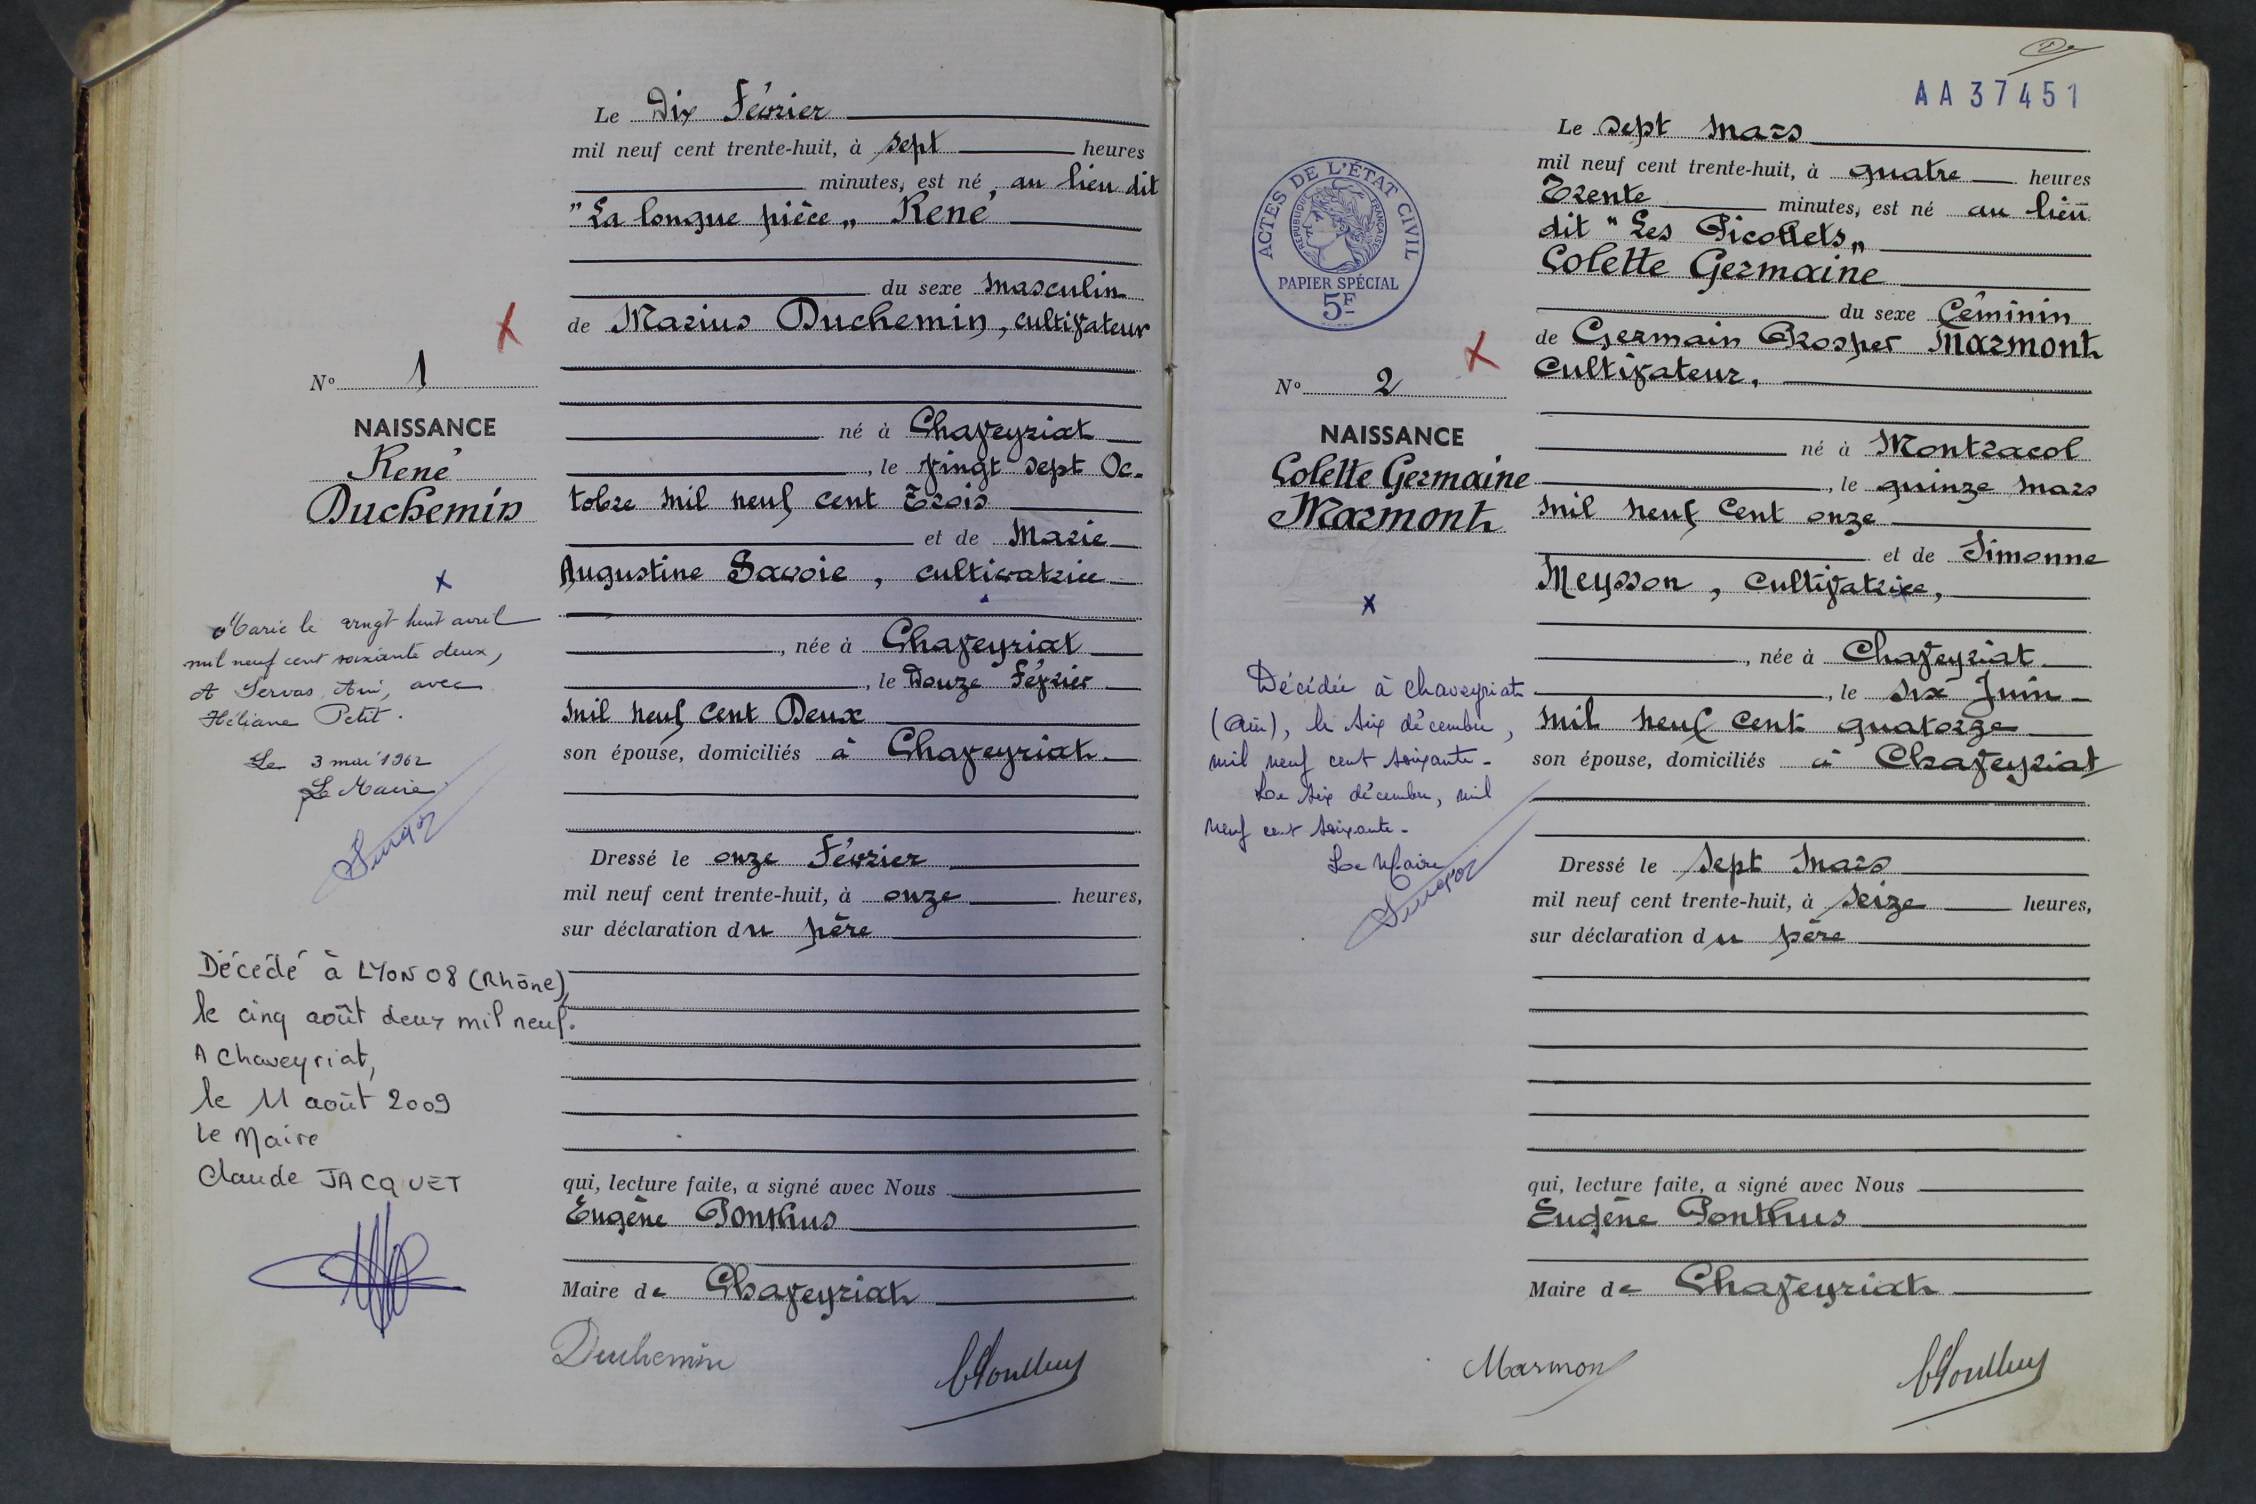 Le Dix Février
mil neuf cent trente-huit, à sept heures
minutes, est né, au lieu dit
"La longue pièce„ René
du sexe masculin
de Marius Duchemin, cultivateur
né à Chaveyriat
, le vingt sept Oc-
tobre mil neuf cent Trois
et de Marie
Augustine Savoie, cultivatrice
, née à Chaveyriat
, le Douze Février
mil neuf cent Deux
son épouse, domiciliés à Chaveyriat.
Dressé le onze Février
mil neuf cent trente-huit, à onze heures,
sur déclaration du père
qui, lecture faite, a signé avec Nous
Eugène Ponthus
Maire de Chaveyriat
Duchemin
N° 1
NAISSANCE
René
Duchemin
Marié le vingt huit avril
mil neuf cent soixante deux,
A Servas Ain, avec
Héliane Petit.
Le 3 mai 1962
Le Maire
Décédé à LYON 08 (Rhône),
le cinq août deux mil neuf.
A Chaveyriat,
le 11 août 2009
Le Maire
Claude JACQUET
AA37451
Le sept mars
mil neuf cent trente-huit, à quatre heures
Trente minutes, est né au lieu
dit "Les Picollets„
Colette Germaine
du sexe Féminin
de Germain Prosper Marmont
Cultivateur,
né à Montracol
, le quinze mars
mil neuf Cent onze
et de Simonne
Meysson, Cultivatrice,
, née à Chaveyriat
, le six Juin
mil neuf Cent quatorze
son épouse, domiciliés à Chaveyriat
Dressé le sept mars
mil neuf cent trente-huit, à seize heures,
sur déclaration du père
qui, lecture faite, a signé avec Nous
Eugène Ponthus
Maire de Chaveyriat
Marmont
ACTES DE L'ÉTAT CIVIL
RÉPUBLIQUE FRANÇAISE
PAPIER SPÉCIAL
5F
N° 2
NAISSANCE
Colette Germaine
Marmont
Décédée à Chaveyriat
(Ain), le six décembre,
mil neuf cent soixante-
Le six décembre, mil
neuf cent soixante-
Le Maire